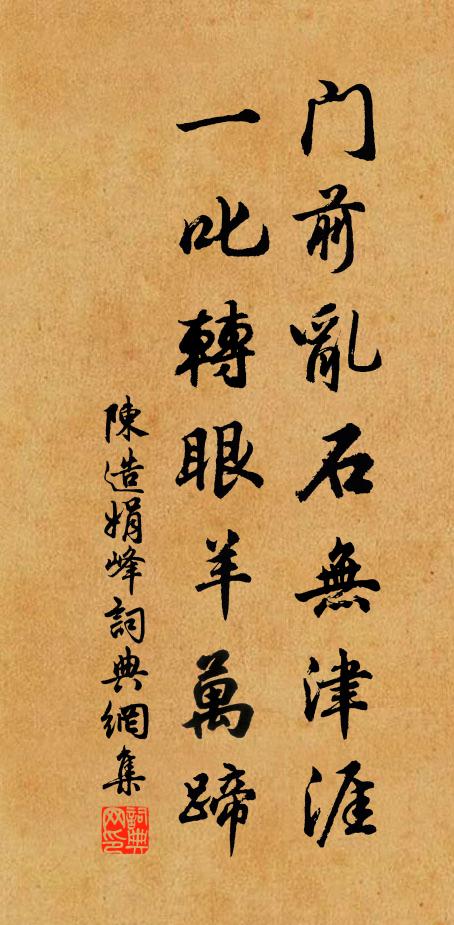 门前亂石無津涯
一叱轉眼羊萬蹄
陳造娟峰詞典網集
詞典网印